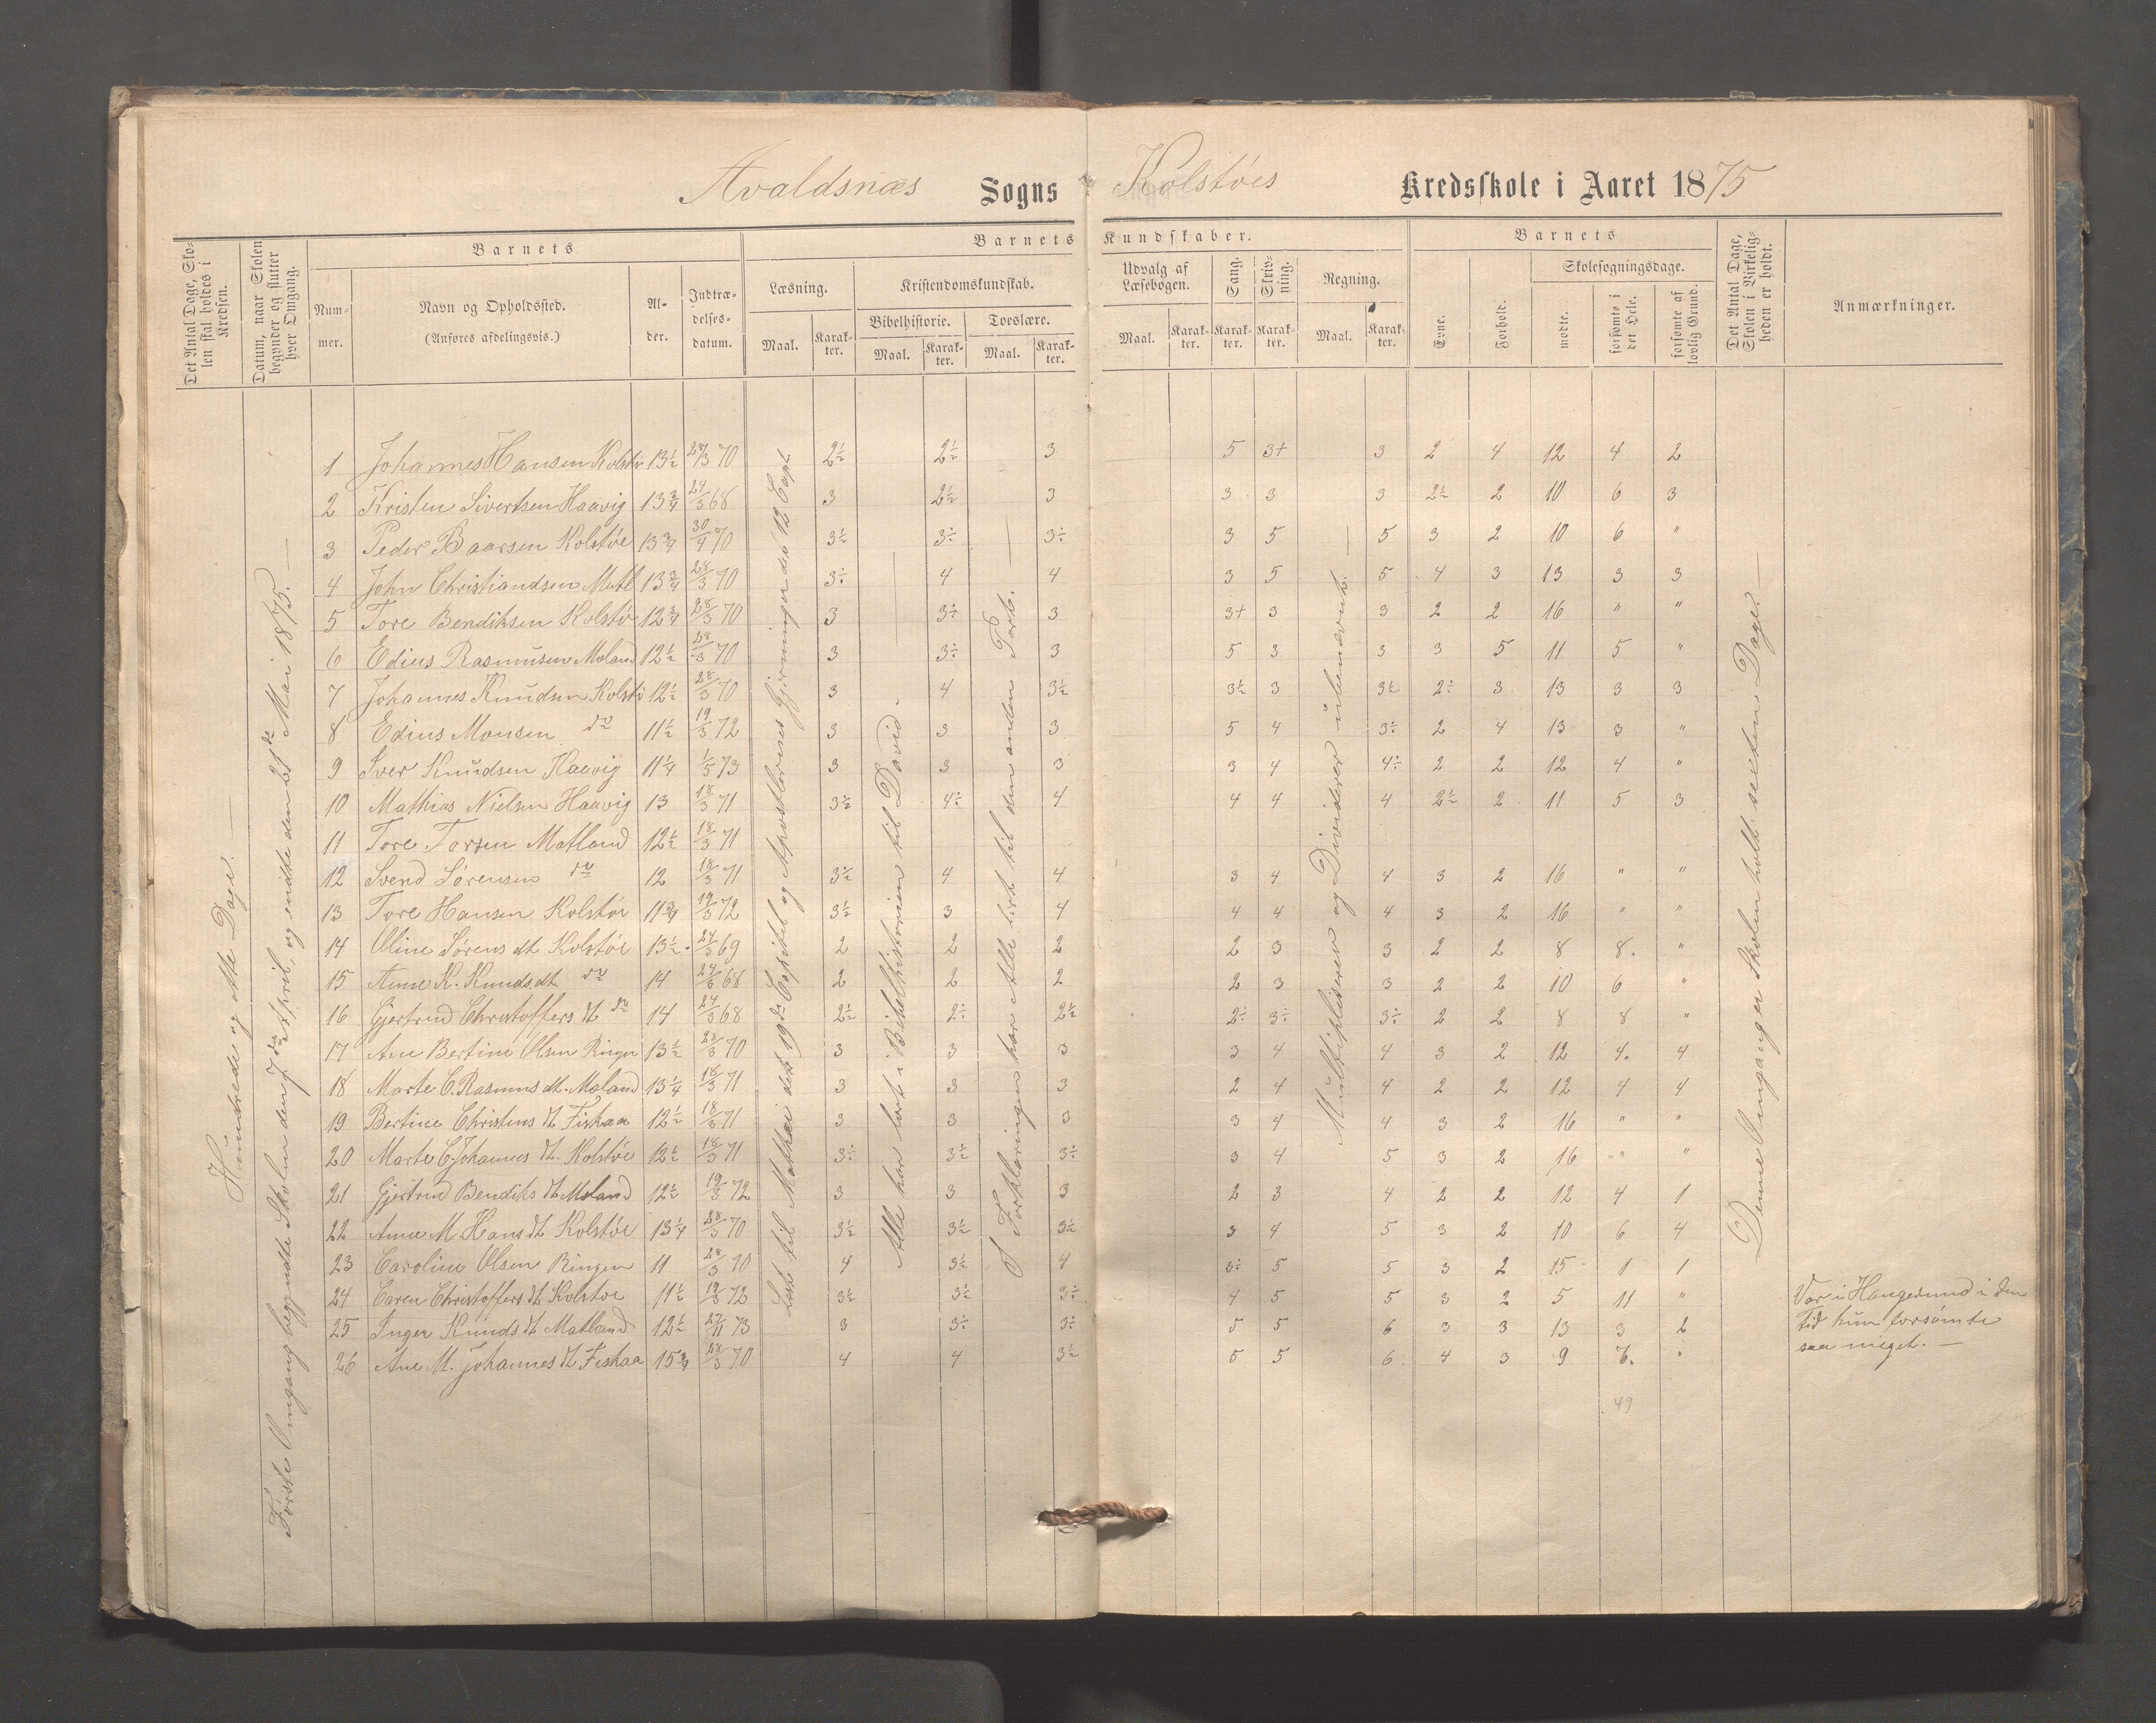 Avaldsnæs Sogns Kolstøes Kredsskole i Aaret 1875
Det Antal Dage, Skolen skal holdes i Kredsen.
Datum, naar Skolen begynder og slutter hver Omgang.
Barnets
Nummer.
Navn og Opholdssted.
(Anføres afdelingsvis.)
Alder.
Indtrædelsesdatum.
Barnets Kundskaber.
Læsning.
Maal.
Karakter.
Kristendomskundskab.
Bibelhistorie.
Maal.
Karakter.
Troeslære.
Maal.
Karakter.
Udvalg af Læsebogen.
Maal.
Karakter.
Sang.
Karakter.
Skrivning.
Karakter.
Regning.
Maal.
Karakter.
Barnets
Evne.
Forhold.
Skolesøgningsdage.
mødte.
forsømte i det Hele.
forsømte af lovlig Grund.
Det Antal Dage, Skolen i Virkeligheden er holdt.
Anmærkninger.
Hundrede og otte Dage. —
Første Omgang begyndte Skolen den 7de April, og endte den 21de Mai 1875. —
Læst til Matthæi det 19de Capitel og Apostlernes Gjerninger det 12 Capt
Alle har læst i Bibelhistorien til David. —
I Forklaringen har Alle læst til den anden Part. —
Multipliserer og Dividerer i ubenævnte. —
Denne Omgang er Skolen holdt sexten Dage. —
1 Johannes Hansen Kolstø 13½ 28/3 70 2½ 2½ 3 5 3+ 3 2 4 12 4 2
2 Kristen Sivertsen Haavig 13¾ 24/3 68 3 2½ 3 3 3 3 2½ 2 10 6 3
3 Peder Baarsen Kolstøe 13¾ 30/4 70 3½ 3÷ 3÷ 3 5 5 3 2 10 6 "
4 John Christiandsen Matl 13¾ 28/3 70 3÷ 4 4 3 5 5 4 3 13 3 3
5 Tore Bendiksen Kolstø 12¾ 28/3 70 3 3÷ 3 3+ 3 3 2 2 16 " "
6 Edius Rasmusen Moland 12½ 28/3 70 3 3÷ 3 5 3 3 3 5 11 5 "
7 Johannes Knudsen Kolstø 12½ 28/3 70 3 4 3½ 3½ 3 3½ 2÷ 3 13 3 3
8 Edius Monsen do 11½ 19/3 72 3 3 3 5 4 3÷ 2 4 13 3 "
9 Iver Knudsen Haavig 11¼ 1/5 73 3 3 3 3 4 4÷ 2 2 12 4 "
10 Mathias Nielsen Haavig 13 18/3 71 3½ 4÷ 4 4 4 4 2½ 2 11 5 3
11 Tore Torsen Matland 12½ 18/3 71
12 Svend Sørensen do 12 18/3 71 3½ 4 4 3 4 4 3 2 16 " "
13 Tore Hansen Kolstøe 11¾ 19/3 72 3½ 3 4 4 4 4 3 2 16 " "
14 Oline Sørens dt Kolstøe 13½ 24/3 69 2 2 2 2 3 3 2 2 8 8. "
15 Anne K. Knuds dt do 14 24/3 68 2 2 2 2 3 3 2 2 10 6 "
16 Gjertrud Christoffers dt do 14 24/3 68 2½ 2÷ 2½ 2÷ 3÷ 3÷ 2 2 8 8 "
17 Ane Bertine Olsen Ringen 13½ 28/3 70 3 3 3 3 4 4 3 2 12 4. 4
18 Marte C. Rasmus dt. Moland 13¼ 18/3 71 3 3 3 2 4 4 2 2 12 4 4
19 Bertine Christens dt Fiskaa 12½ 18/3 71 3 3 3 3 4 4 3 2 16 " "
20 Marte C. Johannes dt. Kolstøe 12½ 18/3 71 3÷ 3½ 3÷ 3 4 5 3 2 16 " "
21 Gjertrud Bendiks dt Moland 12½ 19/3 72 3 3 3 2 3 4 2 2 12 4 1
22 Anne M Hans dt Kolstøe 13¼ 28/3 70 3½ 3½ 3½ 3 4 5 3 2 10 6 4
23 Caroline Olsen Ringen 11 28/3 70 4 3½ 4 3÷ 5 5 3 2 15 1 1
24 Caren Christoffers dt Kolstoe 11½ 19/3 72 3½ 3½ 3÷ 4 5 5 3 2 5 11 " Var i Haugesund i den
25 Inger Knuds dt Matland 12½ 27/11 73 3 3÷ 3÷ 5 5 6 3 3 13 3 2 tid hun forsømte
26 Ane M. Johannes dt Fiskaa 15¾ 28/3 70 4 4 3½ 5 5 6 4 3 9 7. " saa meget. —
49